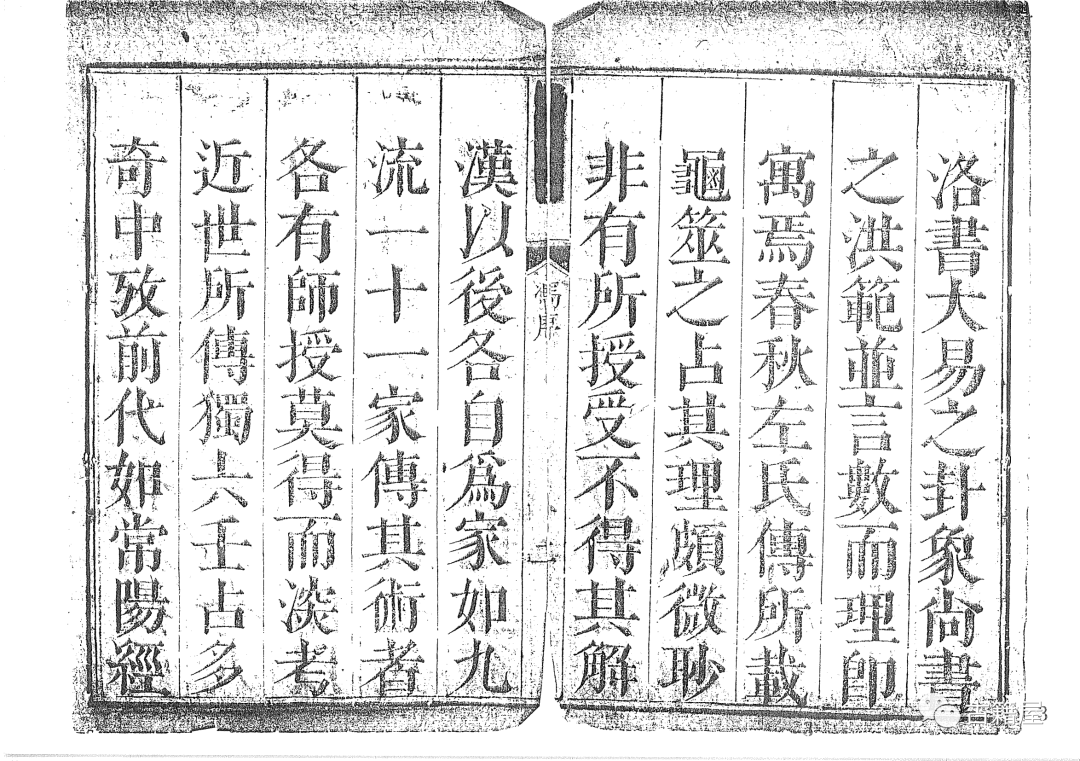 洛書大易之卦象尚書
之洪範並言數而理卽
寓焉春秋左氏傳所載
龜筮之占其理頗微眇
非有所授受不得其解
馮序
二
漢以後各自爲家如九
流一十一家傳其術者
各有師授莫得而淡考
近世所傳獨六壬占多
奇中攷前代如常陽經